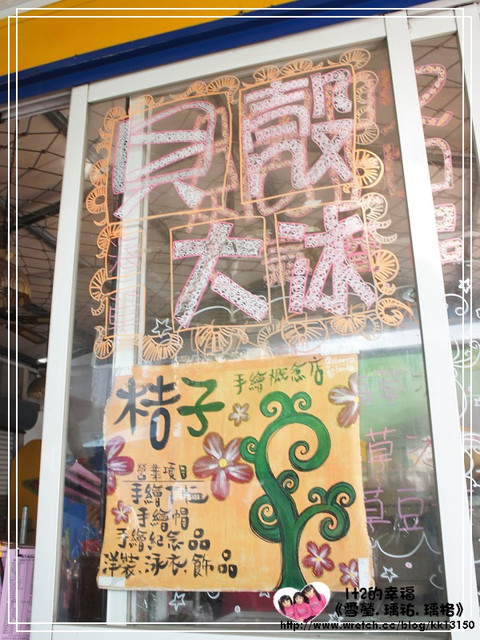 貝殼
大沫
桔子
手繪概念店
營業項目
手繪T-
手繪帽
手繪紀念品
洋裝.泳衣.飾品
草
草豆
1+2的幸福
《雪螢.瑀祐.瑀格》
http://www.wretch.cc/blog/kk13150